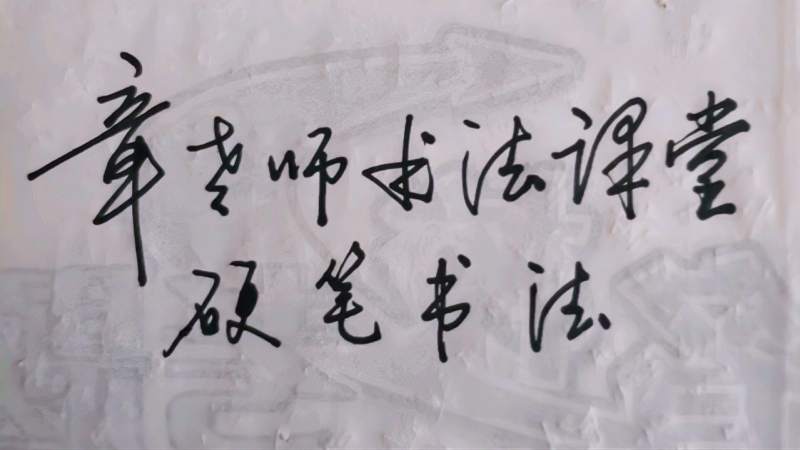 章老师书法课堂
硬笔书法